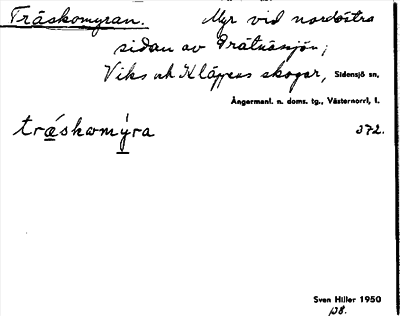 Träskomyran. Myr vid nordöstra
sidan av Prätnässjön;
Viks och Kläppens skogar, Sidensjö sn,
Ångermanl. n. doms. tg., Västernorrl. l.
træ´skωmy´ra 372.
Sven Hiller 1950
p8.